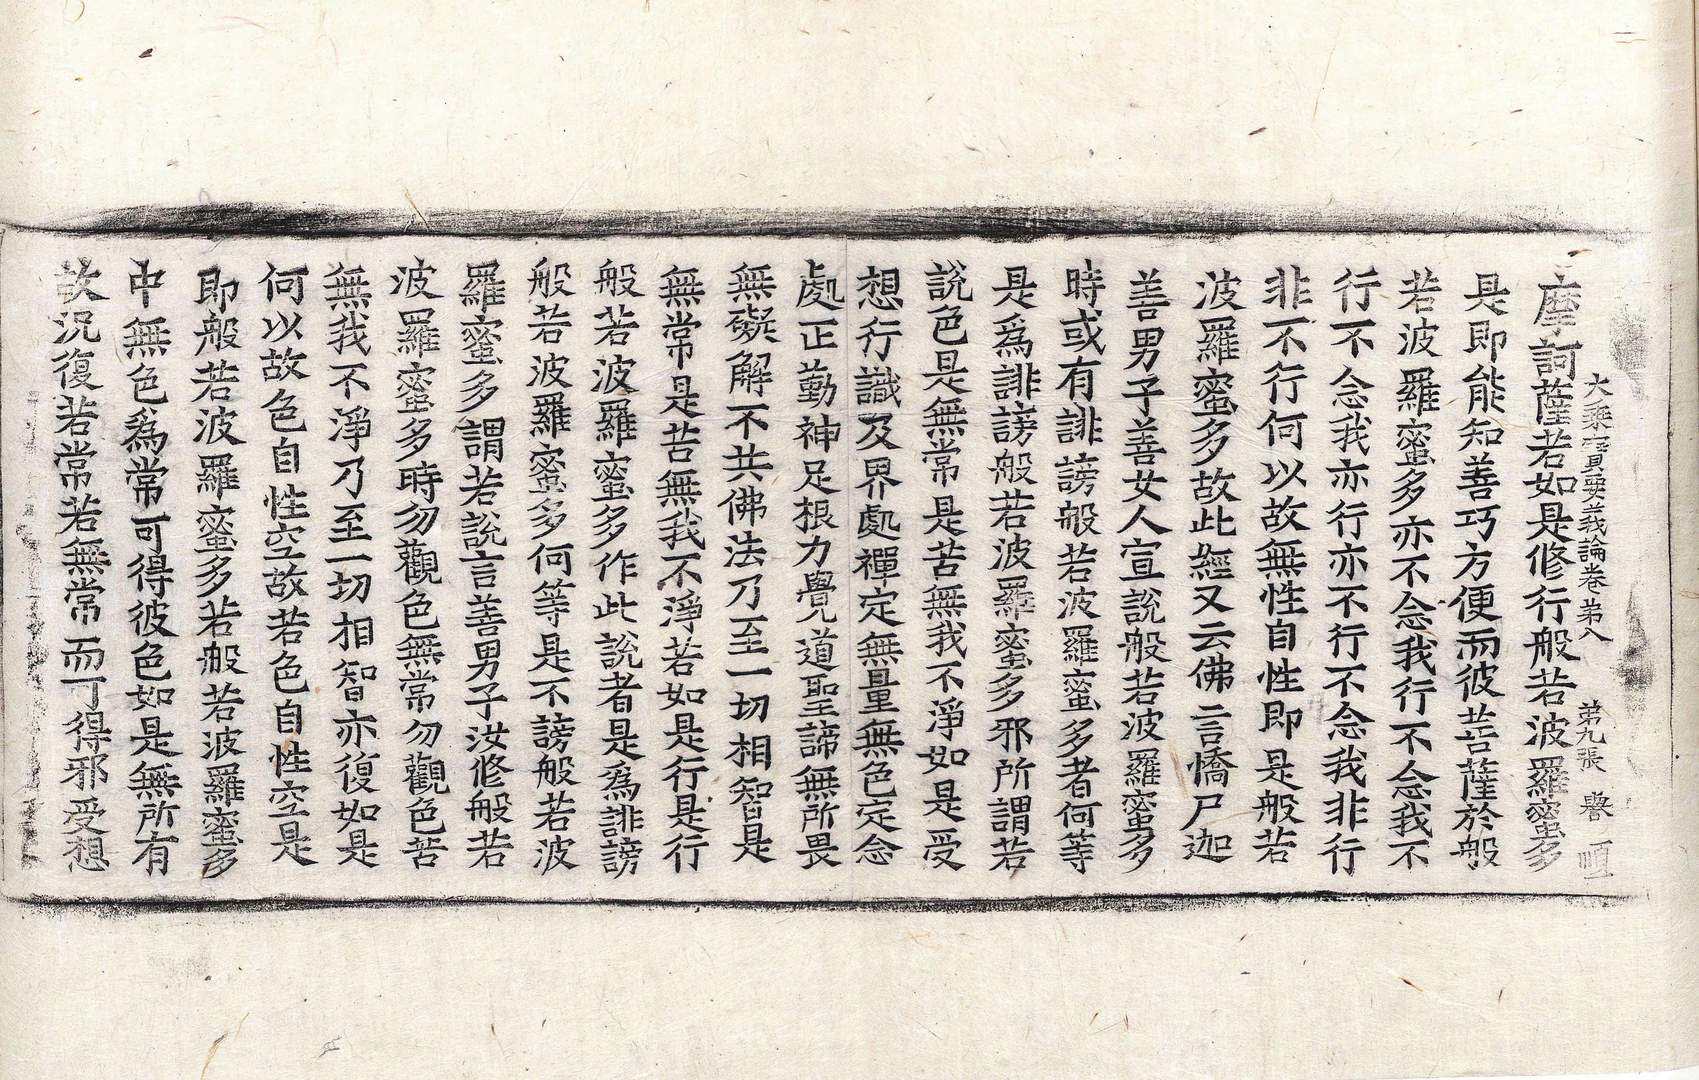 大乘寶要義論卷第八　第九張　譽　順
摩訶薩若如是修行般若波羅蜜多
是即能知善巧方便而彼菩薩於般
若波羅蜜多亦不念我行不念我不
行不念我亦行亦不行不念我非行
非不行何以故無性自性即是般若
波羅蜜多故此經又云佛言憍尸迦
善男子善女人宣說般若波羅蜜多
時或有誹謗般若波羅蜜多者何等
是爲誹謗般若波羅蜜多邪所謂若
說色是無常是苦無我不淨如是受
想行識及界處禪定無量無色定念
處正勤神足根力覺道聖諦無所畏
無礙解不共佛法乃至一切相智是
無常是苦無我不淨若如是行是行
般若波羅蜜多作此說者是爲誹謗
般若波羅蜜多何等是不謗般若波
羅蜜多謂若說言善男子汝修般若
波羅蜜多時勿觀色無常勿觀色苦
無我不淨乃至一切相智亦復如是
何以故色自性空故若色自性空是
即般若波羅蜜多若般若波羅蜜多
中無色爲常可得彼色如是無所有
故況復若常若無常而可得邪受想